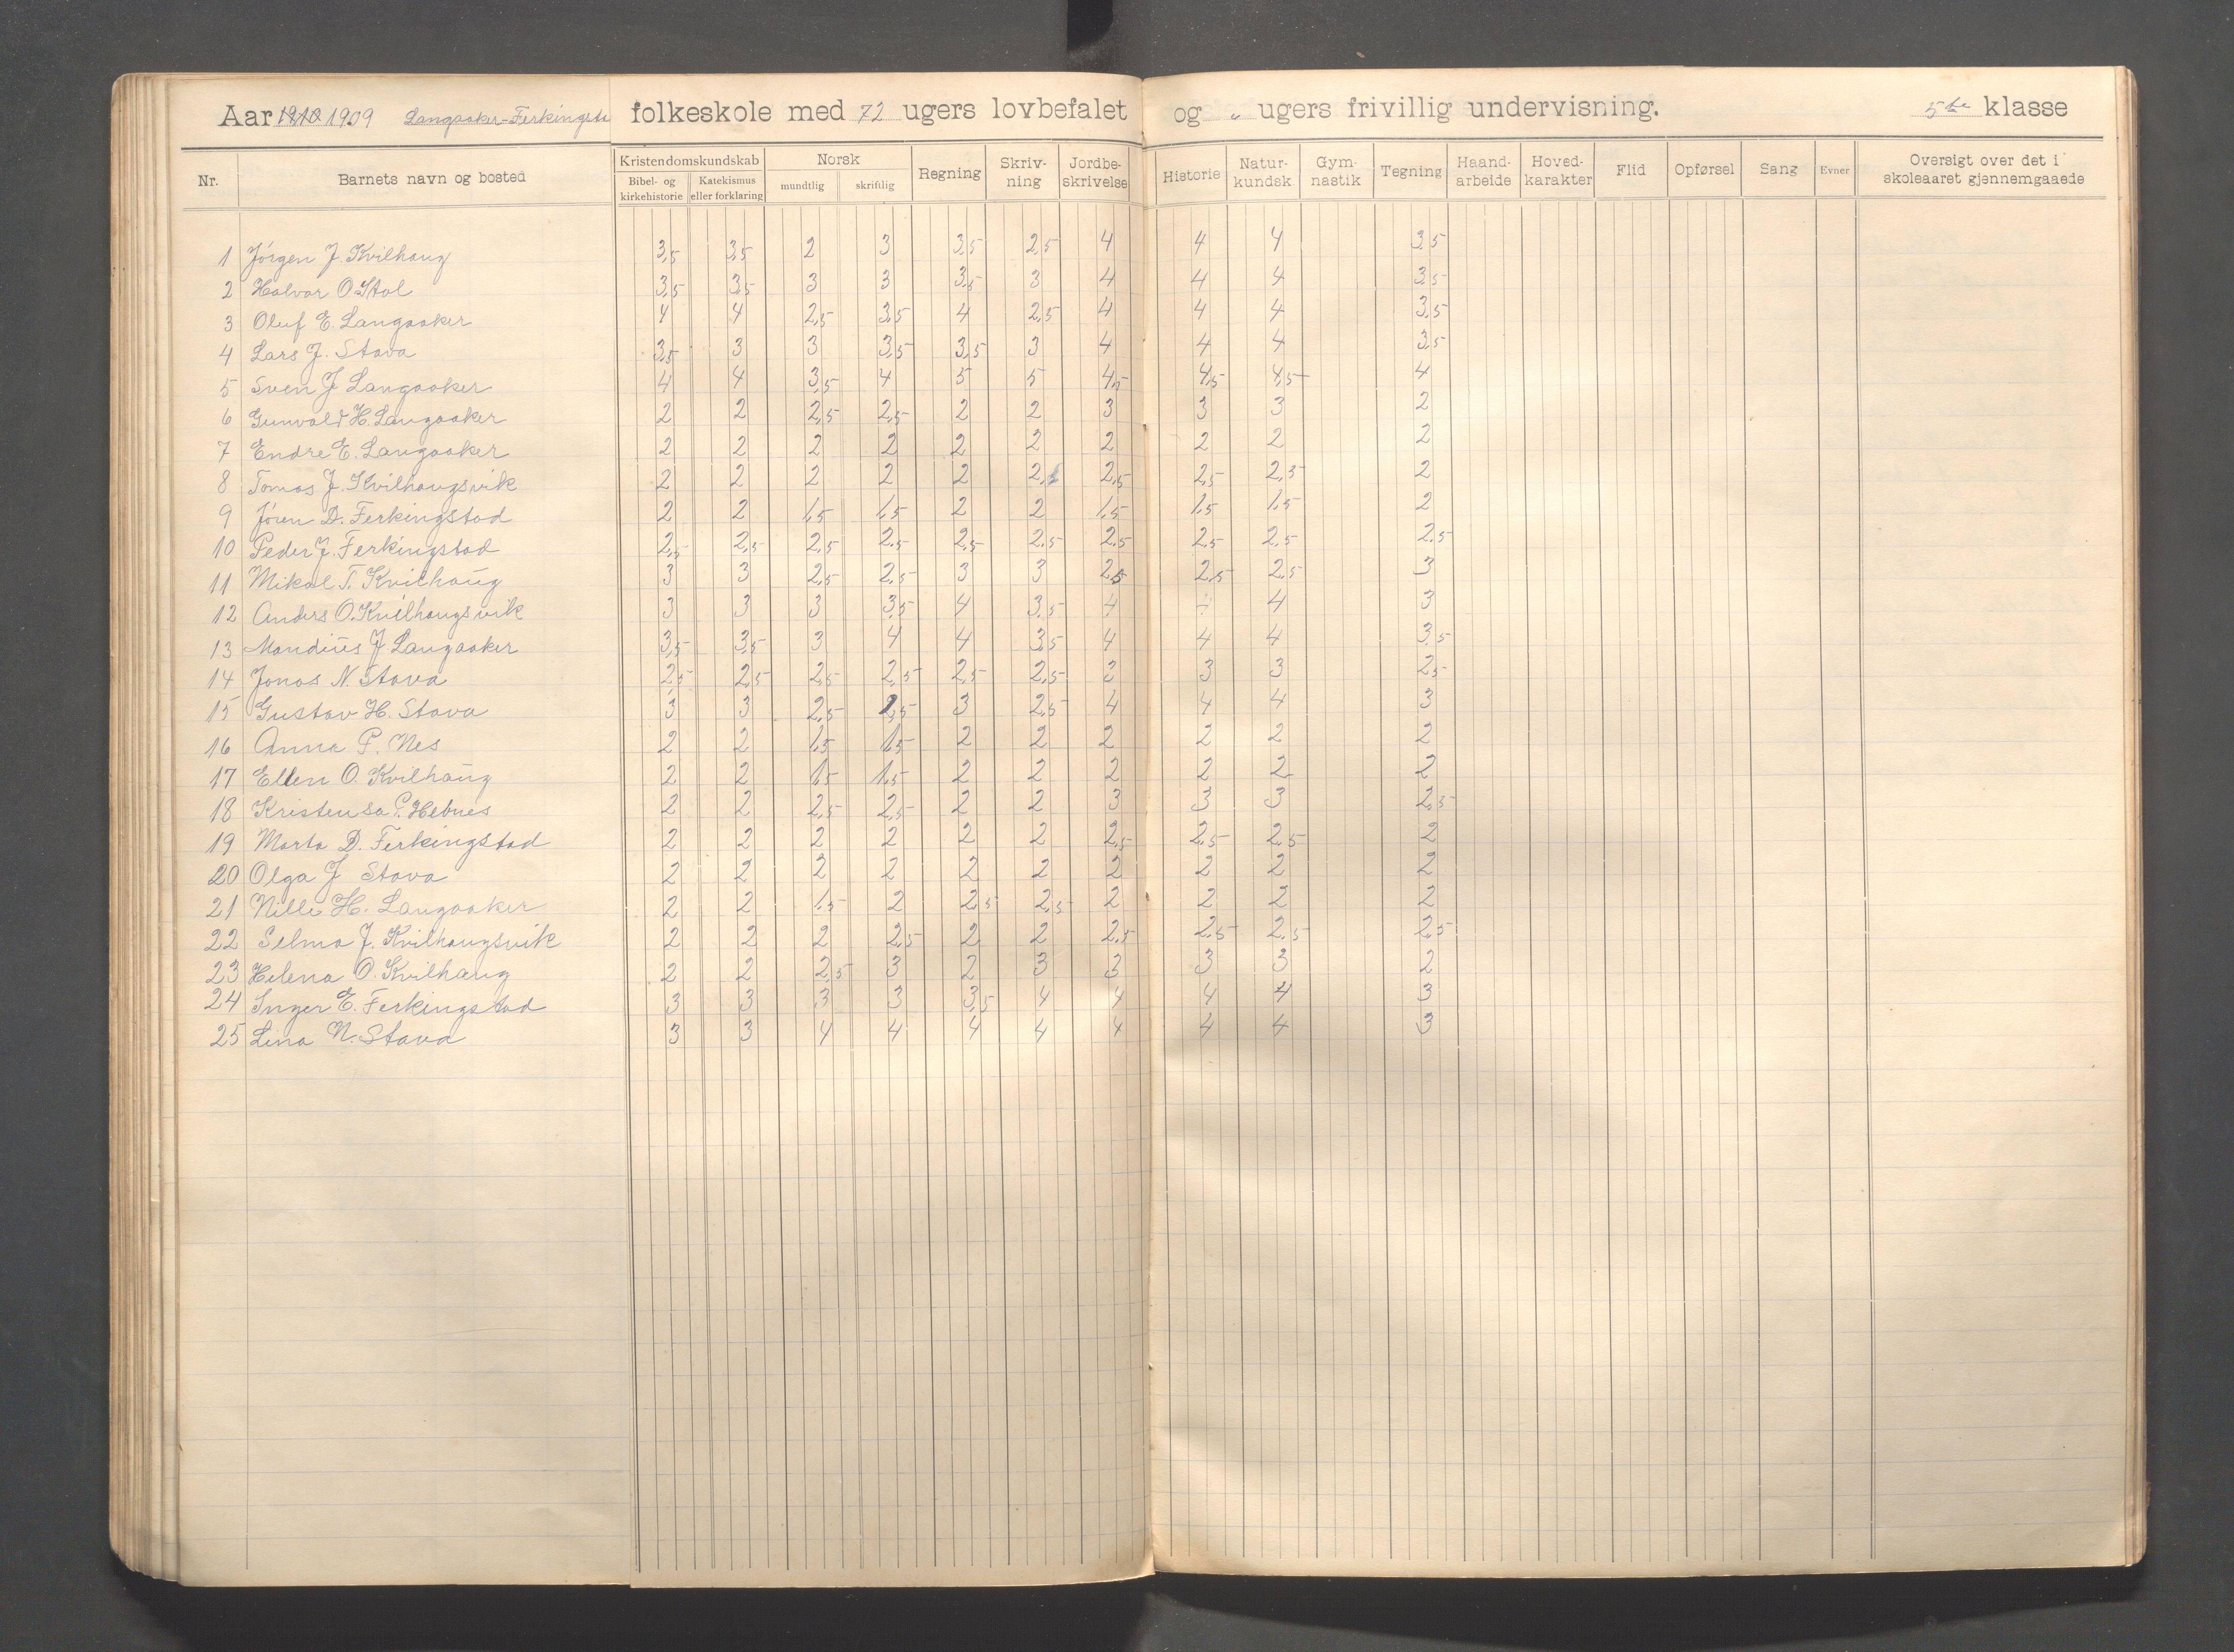 Aar 1910 1909 Langaaker-Ferkingsta folkeskole med 72 ugers lovbefalet og " ugers frivillig undervisning. 5te klasse
Nr. Barnets navn og bosted Kristendomskundskab Bibel- og kirkehistorie Katekismus eller forklaring Norsk mundtlig skriftlig Regning Skriv-ning Jordbe-skrivelse Historie Natur-kundsk. Gym-nastik Tegning Haand-arbeide Hoved-karakter Flid Opførsel Sang Evner Oversigt over det i skoleaaret gjennemgaaede
1 Jørgen J. Kvilhaug 3,5 3,5 2 3 3,5 2,5 4 4 4 3,5
2 Halvor O. Stol 3,5 3,5 3 3 3,5 3 4 4 4 3,5
3 Oluf E. Langaaker 4 4 2,5 3,5 4 2,5 4 4 4 3,5
4 Lars J. Stava 3,5 3 3 3,5 3,5 3 4 4 4 3,5
5 Sven J Langaaker 4 4 3,5 4 5 5 4,5 4,5 4,5 4
6 Gunvald H. Langaaker 2 2 2,5 2,5 2 2 3 3 3 2
7 Endre E. Langaaker 2 2 2 2 2 2 2 2 2 2
8 Tomas J. Kvilhaugsvik 2 2 2 2 2 2, 2,5 2,5 2,5 2
9 D. Ferkingstad 2 2 1,5 1,5 2 2 1,5 1,5 1,5 2
10 Peder J. Ferkingstad 2,5 2,5 2,5 2,5 2,5 2,5 2,5 2,5 2,5 2,5
11 Mikal T. Kvilhaug 3 3 2,5 2,5 3 3 2,5 2,5 2,5 3
12 Anders O. Kvilhaugsvik 3 3 3 3,5 4 3,5 4 4 4 3
13 Mandius J Langaaker 3,5 3,5 3 4 4 3,5 4 4 4 3,5
14 Jonas N. Stava 2,5 2,5 2,5 2,5 2,5 2,5 3 3 3 2,5
15 Gustav H. Stava 3 3 2,5 2,5 3 2,5 4 4 4 3
16 Anna P. Nes 2 2 1,5 1,5 2 2 2 2 2 2
17 Ellen O. Kvilhaug 2 2 1,5 1,5 2 2 2 2 2 2
18 Kristensa P. Hebnes 2 2 2,5 2,5 2 2 3 3 3 2,5
19 Marta D. Ferkingstad 2 2 2 2 2 2 2,5 2,5 2,5 2
20 Olga J Stava 2 2 2 2 2 2 2 2 2 2
21 Nille H. Langaaker 2 2 1,5 2 2,5 2,5 2 2 2 2
22 Selma J. Kvilhaugsvik 2 2 2 2,5 2 2 2,5 2,5 2,5 2,5
23 Helena O. Kvilhaug 2 2 2,5 3 2 3 3 3 3 2
24 Inger E. Ferkingstad 3 3 3 3 3,5 4 4 4 4 3
25 Lina N. Stava 3 3 4 4 4 4 4 4 4 3